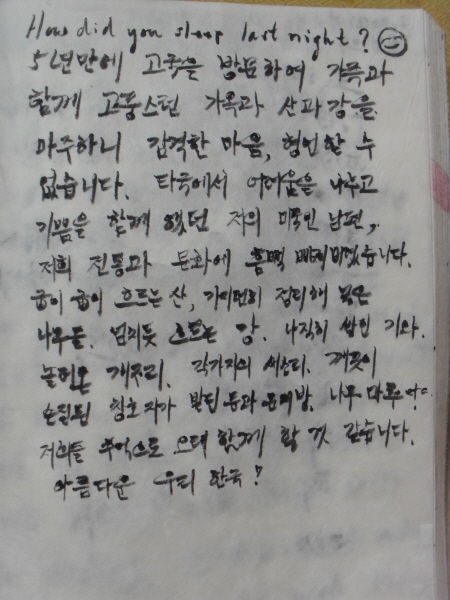 How did you sleep last night?
5년만에 고국을 방문하여 가족과
함께 고풍스런 가옥과 산과 강을
마주하니 감격한 마음, 형언할 수
없습니다. 타국에서 어려움을 나누고
기쁨을 함께 했던 저의 미국인 남편,
저희 전통과 문화에 흠뻑 빠져버렸습니다.
굽이 굽이 흐르는 산, 가지런히 정리해 놓은
나무들. 넘치듯 흐르는 강. 나직히 쌓인 기와.
개구리. 각가지의 새소리. 깨끗이
손질된 창호지가 발린 문과 온돌방. 나무 마루
저희들 추억으로 오래 함께 할 것 같습니다.
아름다운 우리 한국!